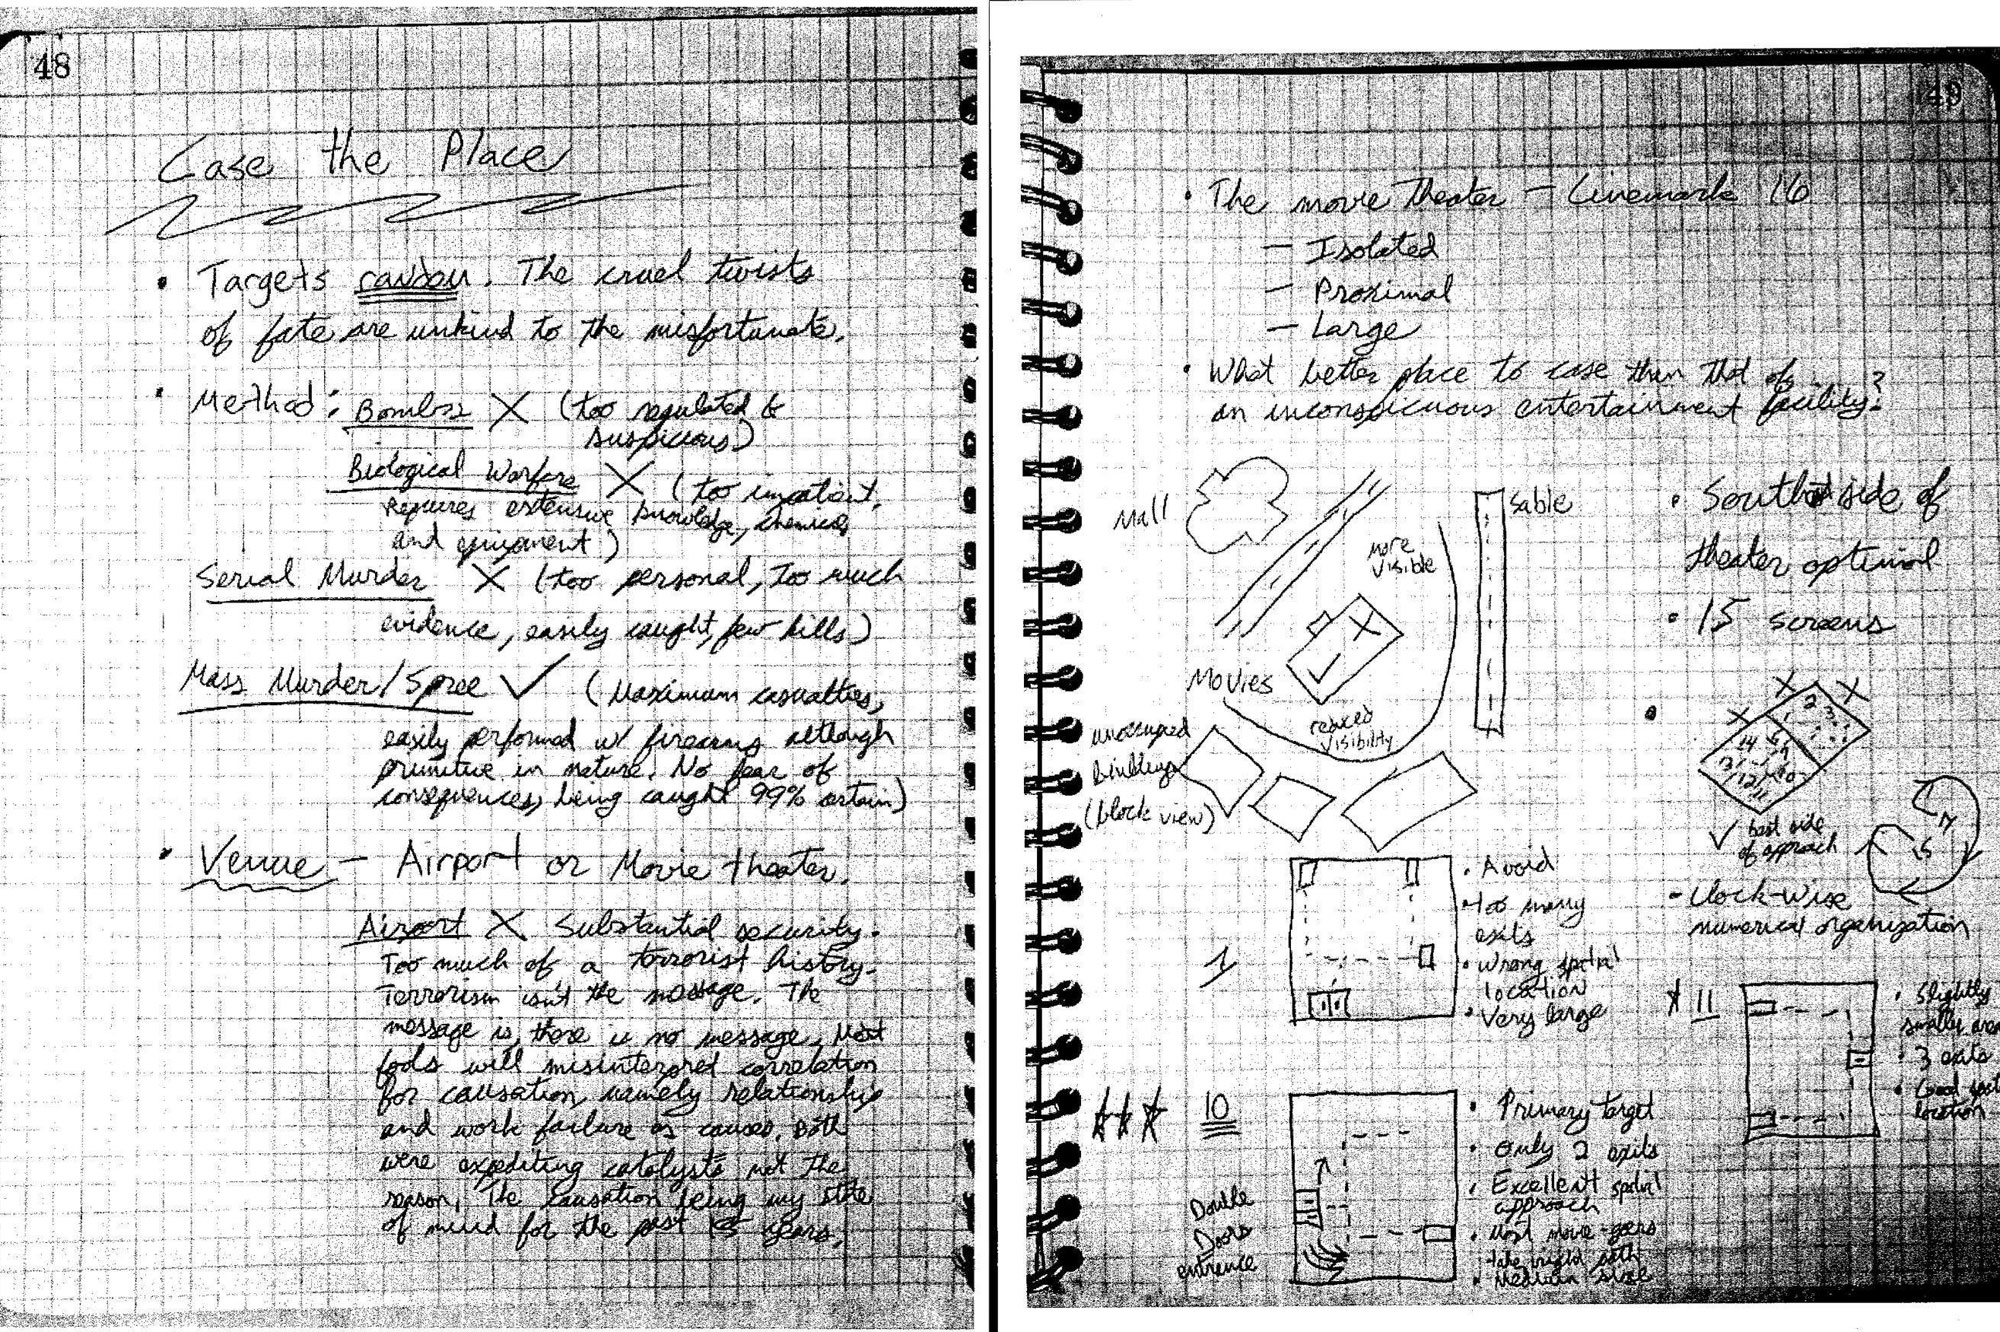 48
Case the Place
• Targets random. The cruel twists
of fate are unkind to the misfortunate.
• Method: Bombs X (too regulated &
suspicious)
Biological Warfare X (too impatient,
requires extensive knowledge, chemicals
and equipment)
Serial Murder X (too personal, too much
evidence, easily caught, few kills)
Mass Murder/Spree ✓ (Maximum casualties,
easily performed w/ firearms although
primitive in nature. No fear of
consequences, being caught 99% certain)
• Venue – Airport or Movie theater.
Airport X Substantial security.
Too much of a terrorist history.
Terrorism isn't the message. The
message is, there is no message. Most
fools will misinterpret correlation
for causation, namely relationship
and work failure as causes. Both
were expediting catalysts not the
reason. The causation being my state
of mind for the past 15 years.
49
• The movie theater – Cinemark 16
– Isolated
– Proximal
– Large
• What better place to case than that of
an inconspicuous entertainment facility?
Mall
Sable
more
visible
Movies
reduced
visibility
unoccupied
Buildings
(block view)
• South side of
theater optimal
• 15 screens
X X X
2
3
1
14 6
13
12 10
11
✓ best side
of approach
– Clock-wise
numerical organization
1
• Avoid
• too many
exits
• Wrong spatial
location
• Very large
11
• Slightly
smally area
• 3 exits
• Good
location
10
• Primary target
• Only 2 exits
• Excellent spatial
approach
• Most movie-goers
take right path
• Medium size
Double
Doors
entrance